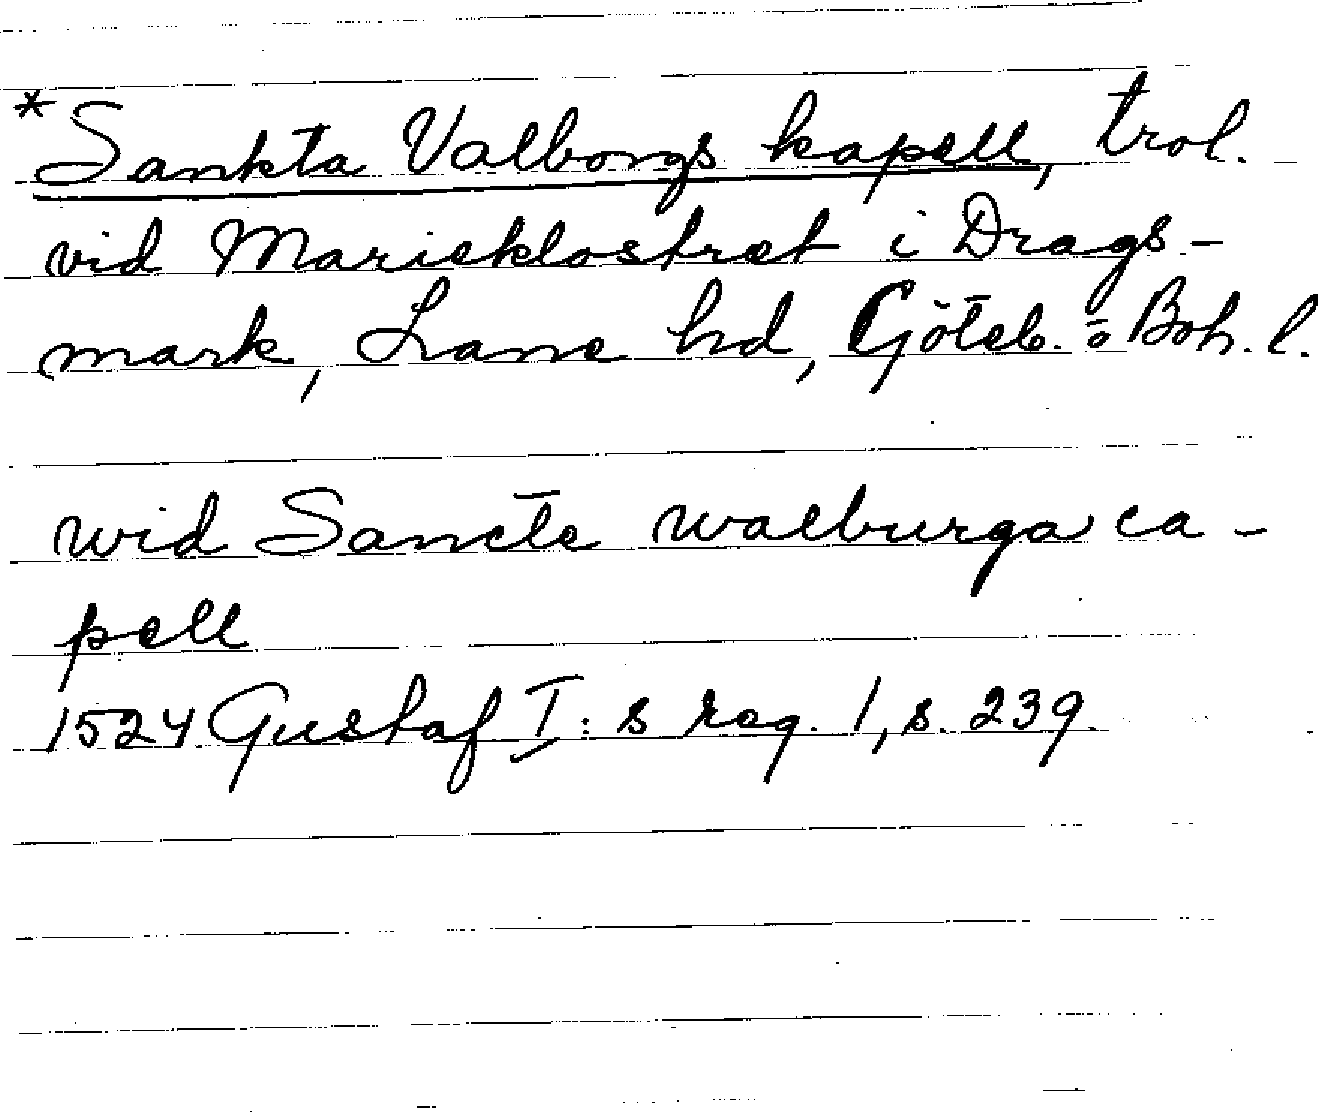 *Sankta Valborgs kapell, trol.
vid Marieklostret i Drags-
mark, Lane hd, Göteb. o Boh. l.
wid Sancte walburga ca-
pell
1524 Gustaf I:s reg. 1, s. 239.